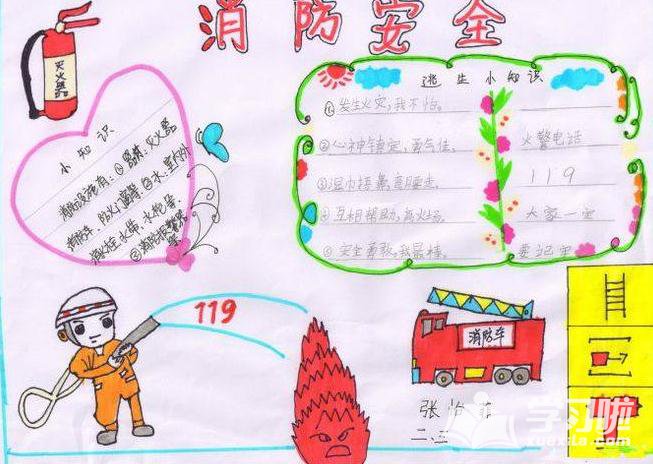 消防安全
灭火器
小知识
消防设施有：①器材：灭火器
消防车、防火门窗等②水：室内外
消火栓、水带、水枪等。
逃生小知识
①发生火灾，我不怕。
②心神镇定，勇气佳。
③湿巾捂鼻，弯腰走。
④互相帮助，离火场。
⑤安全勇敢，我最棒。
火警电话
119
大家一定
要记牢
119
消防车
张怡
二.三
学习啦
xuexila.com